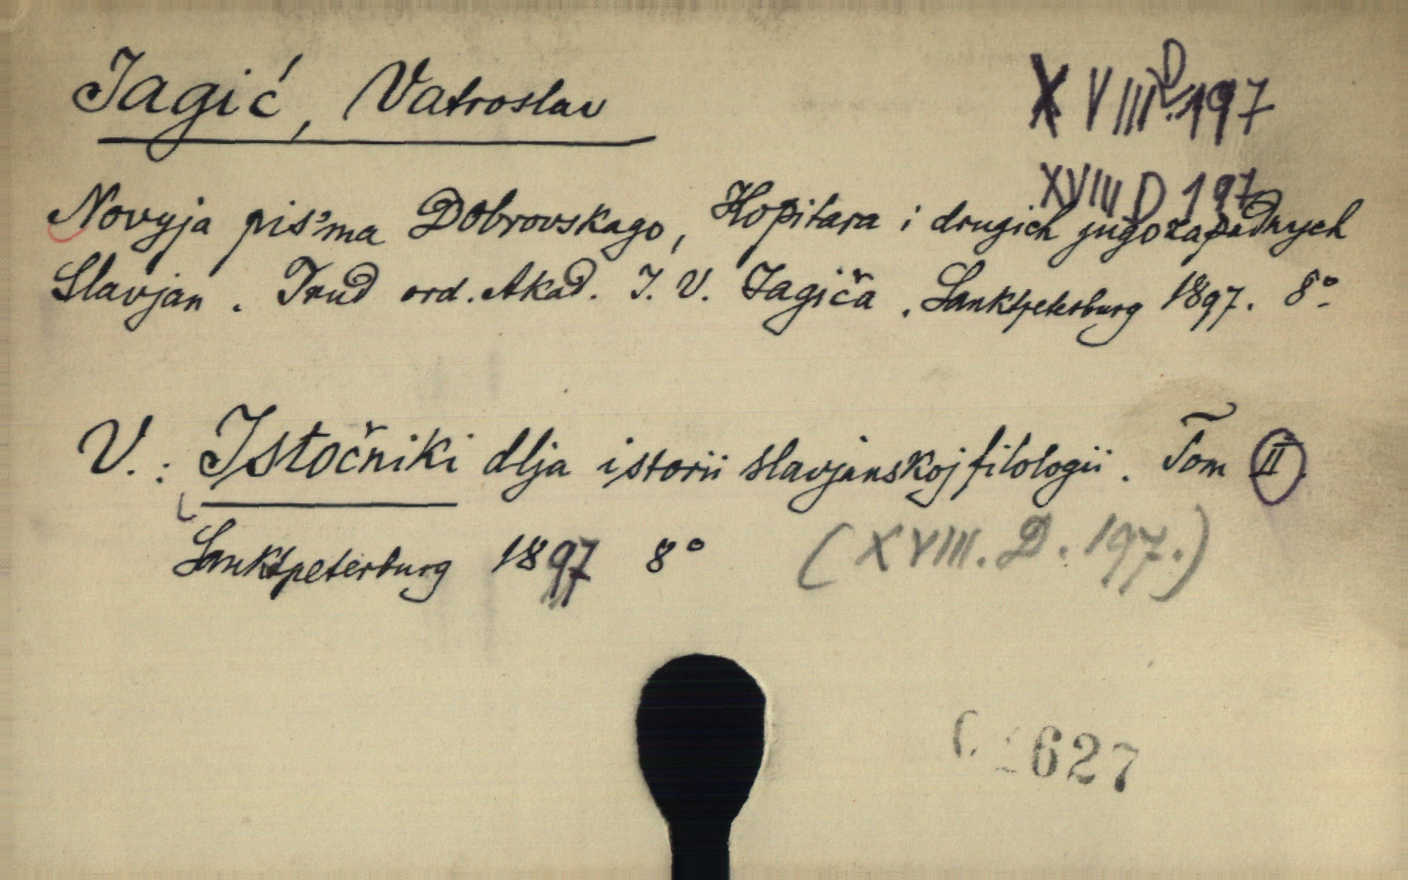 Jagić, Vatroslav
XVIII D 197
XVIII D 197
Novyja pis'ma Dobrovskago, Kopitara i drugich jugozapadnych
Slavjan. Trud ord. Akad. I. V. Jagiča. Sanktpeterburg 1897. 8°
V.: Istočniki dlja istorii slavjanskoj filologii. Tom II.
Sanktpeterburg 1897 8° (XVIII. D. 197.)
627